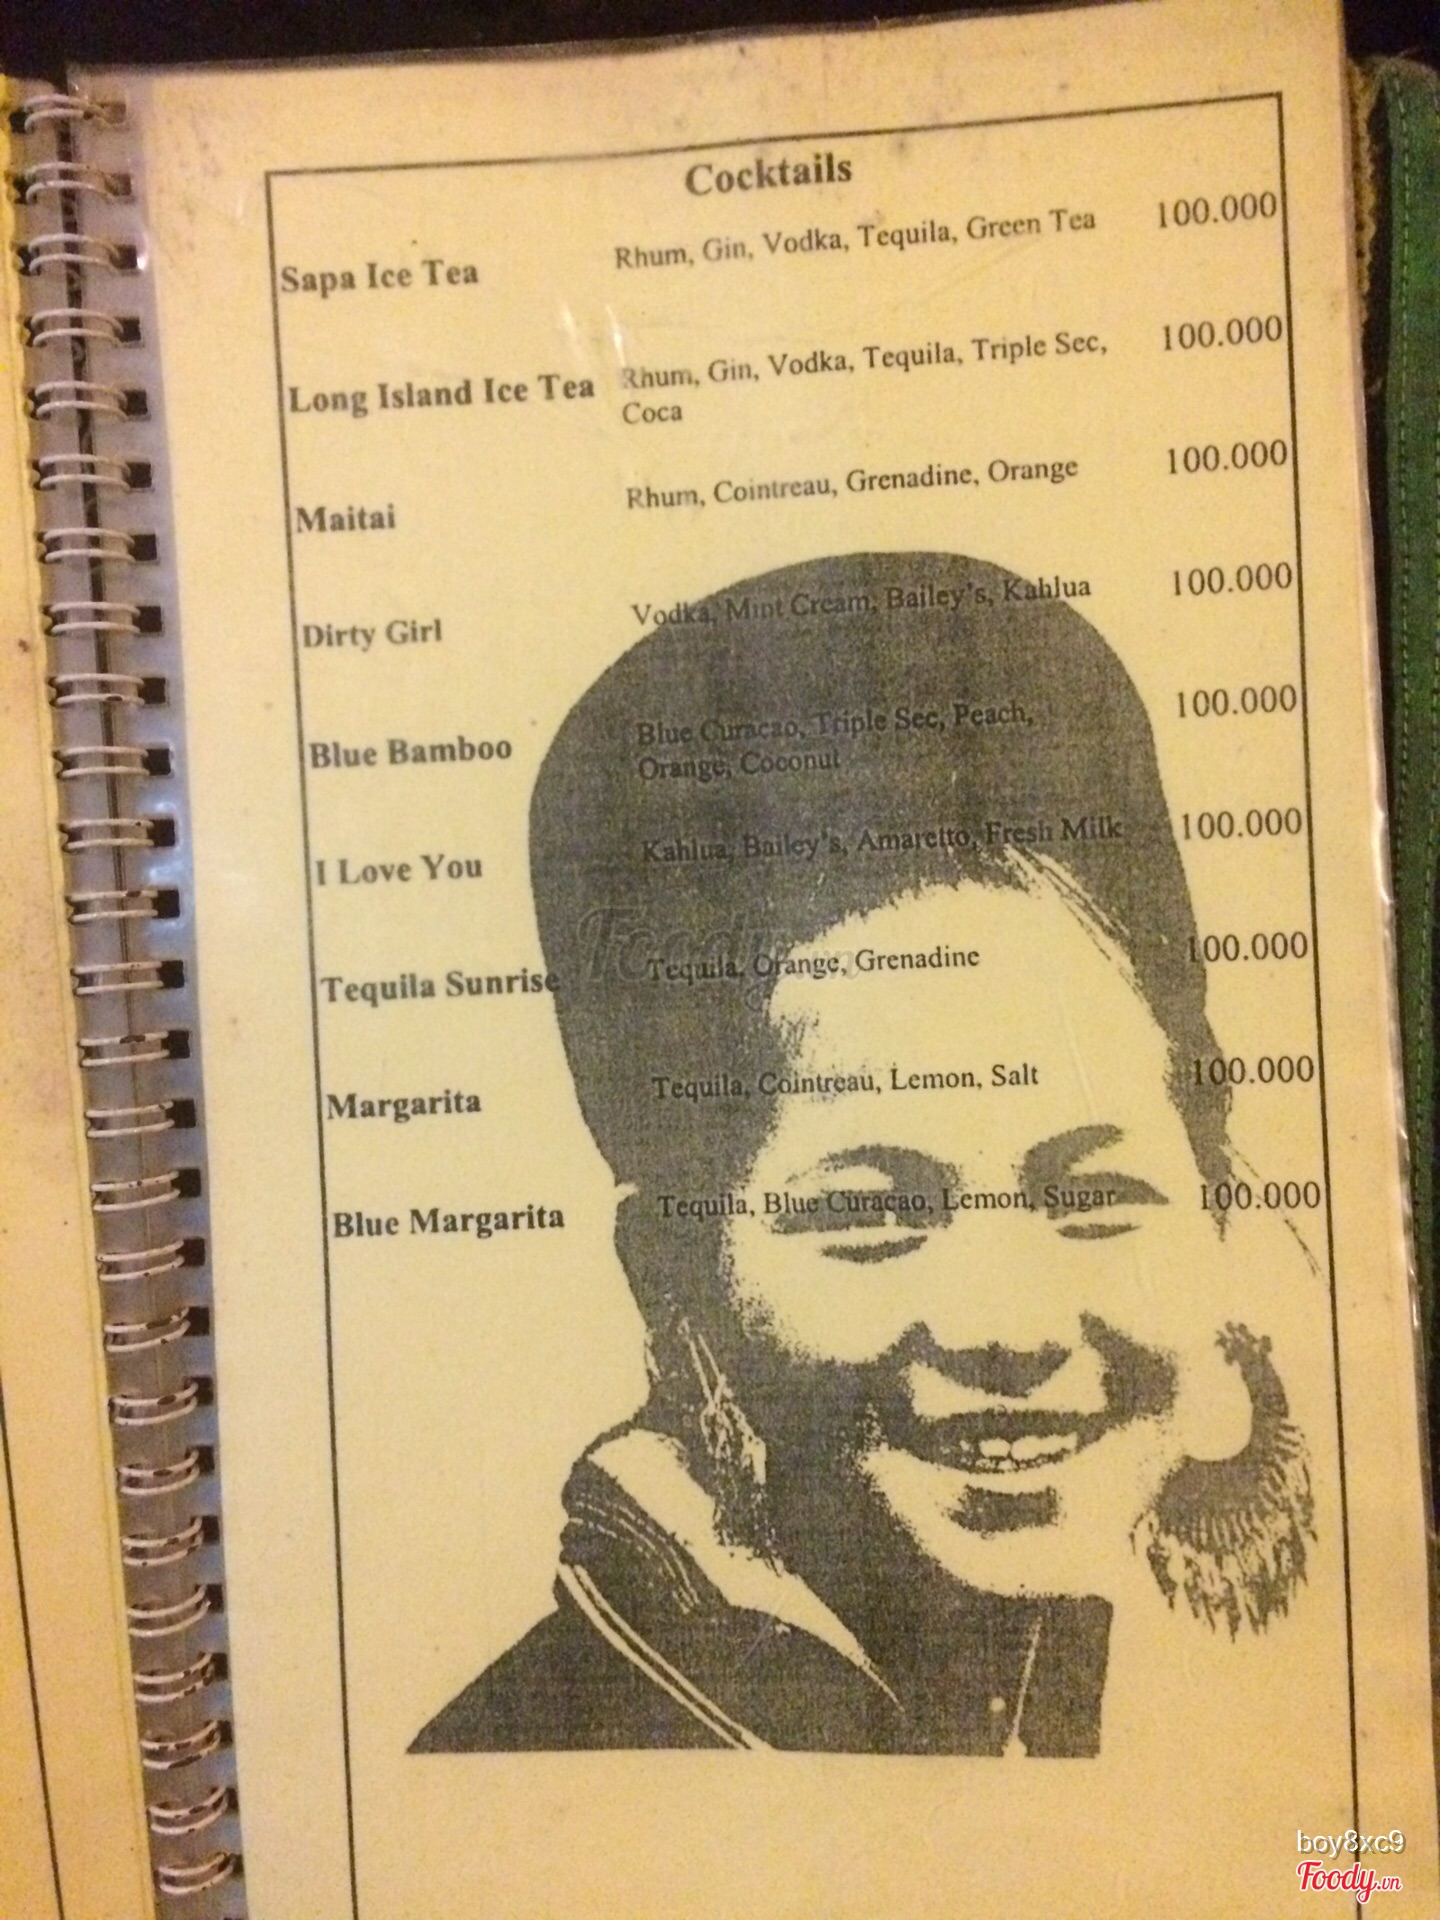 Cocktails
Sapa Ice Tea Rhum, Gin, Vodka, Tequila, Green Tea 100.000
Long Island Ice Tea Rhum, Gin, Vodka, Tequila, Triple Sec, 100.000
Coca
Maitai Rhum, Cointreau, Grenadine, Orange 100.000
Dirty Girl Vodka, Mint Cream, Bailey's, Kahlua 100.000
Blue Bamboo Blue Curacao, Triple Sec, Peach, 100.000
Orange, Coconut
I Love You Kahlua, Bailey's, Amaretto, Fresh Milk 100.000
Tequila Sunrise Tequila, Orange, Grenadine 100.000
Margarita Tequila, Cointreau, Lemon, Salt 100.000
Blue Margarita Tequila, Blue Curacao, Lemon, Sugar 100.000
Foody.vn
boy8xc9
Foody.vn